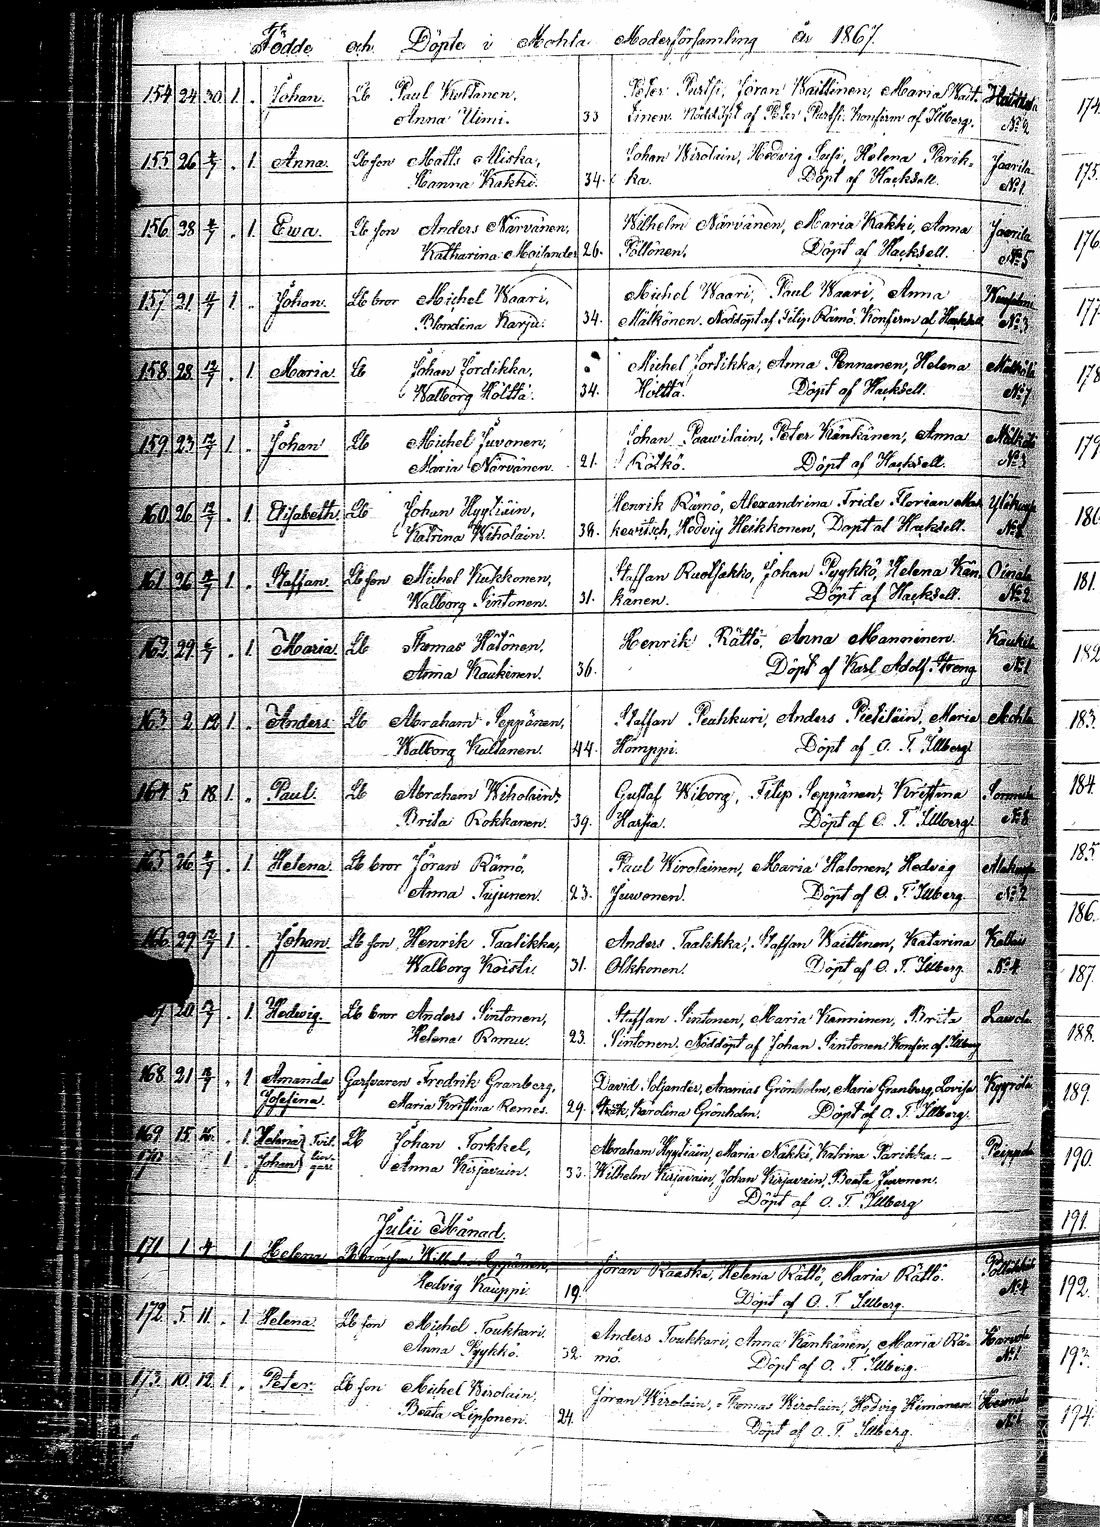 Födde och Döpte i Mohla Moderförsamling år 1867.
154 24 30 1 . Johan. Lb Paul Kultanen, Peter Purssi, Jöran Waittinen, Maria Wait-
Anna Uimi. 33 tinen. Nöddöpt af Peter Purssi. Konfirm af Illberg. No 2
155 26 2/7 . 1. Anna. Lb son Matts Miska, Johan Wirolain, Hedwig Susi, Helena Parik- Jaarila
Hanna Kakki. 34. ka. Döpt af Hacksell. No 1
156 28 2/7 . 1. Ewa. Lb son Anders Närvänen, Wilhelm Närvänen, Maria Kakki, Anna Jaarila
Katharina Moilander 26. Pöllönen. Döpt af Hacksell. No 5
157 21 4/7 1. . Johan. Lb bror Michel Waari, Michel Waari, Paul Waari, Anna
Blondina Karju. 34. Mälkönen. Nöddöpt af Filip Rämö. Konfirm af Hacksell No 3
158 28 12/7 . 1 Maria. Lb Johan Jordikka, Michel Jortikka, Anna Pennanen, Helena Mälkölä
Walborg Höltta. 34. Höltta. Döpt af Hacksell. No 7
159 23 12/7 1. . Johan Lb Michel Juvonen, Johan Paawilain, Peter Känkänen, Anna Mälkölä
Maria Närvänen. 21. Rölkö. Döpt af Hacksell. No 3
160 26 12/7 . 1. Elisabeth. Lb Johan Hyytiäin, Henrik Rämö, Alexandrina Fride Florian Mas-
Katrina Wiholain. 38. kewitsch, Hedvig Heikkonen, Döpt af Hacksell.
161 26 1. . Staffan. Lb son Michel Kukkonen, Staffan Ruotsakko, Johan Pyykkö, Helena Kän- Oinala
Walborg Sintonen. 31. känen. Döpt af Hacksell. No 2
162 29 6/7 . 1. Maria. Lb Thomas Hätönen, Henrik Rättö, Anna Manninen. Kaukila
Anna Kaukinen. 36. Döpt af Karl Adolf Streng No 1
163 2 12 1. . Anders Lb Abraham Seppänen, Staffan Peuhkuri, Anders Pietiläin, Maria Mohla
Walborg Kultanen. 44. Homppi. Döpt af O. T. Illberg
164 5 18 1. . Paul. Lb Abraham Wiholain, Gustaf Wiborg, Filip Seppänen, Kristina
Brita Rokkanen. 39. Harsia. Döpt af O. T. Illberg. No 8
165 26 . 1. Helena. Lb bror Jöran Rämö, Paul Wirolainen, Maria Halonen, Hedvig
Anna Tujunen. 23. Juwonen. Döpt af O. T. Illberg. No 2
166 29 12/7 1. Johan. Lb son Henrik Taalikka, Anders Taalikka, Staffan Waittinen, Katarina
Walborg Koistu. 31. Okkonen. Döpt af O. T. Illberg. No 4
20 . 1. Hedwig. Lb bror Anders Sintonen, Staffan Sintonen, Maria Kanninen, Brita
Helena Ramu. 23. Sintonen. Nöddöpt af Johan Sintonen. Konfir. af Illberg
168 21 . 1 Amanda Garfvaren Fredrik Granberg, David Soljander, Ananias Grönholm, Maria Granberg, Lovisa Kyyrölä
Josefina. Maria Kristina Remes. 29. Stök, Karolina Grönholm. Döpt af O. T. Illberg.
169 15 16. . 1. Helena } Tvil- Lb Johan Torkkel, Abraham Hyytiäin, Maria Näkki, Katrina Parikka. —
170 1 Johan } lin-gar. Anna Kirjavain. 33. Wilhelm Kirjavain, Johan Kirjavain, Beata Juvonen.
Döpt af O. T. Illberg
Julii Månad.
171 1 4 . 1. Helena Jöran Raaska, Helena Rättö, Maria Rättö.
Hedvig Kauppi. 19. Döpt af O. T. Illberg. No 4
172 5 11. . 1 Helena. Lb son Michel Toukkari, Anders Toukkari, Anna Känkänen, Maria Rä-
Anna Pyykkö. 32. mö. Döpt af O. T. Illberg. No 1
173. 10. 12. 1. . Peter. Lb son Michel Wirolain, Jöran Wirolain, Thomas Wirolain, Hedvig Himanen.
Beata Lipsonen. 24. Döpt af O. T. Illberg. No 1
174
175.
176
177.
178
179
180
181.
182
183.
184.
185
186.
187.
188.
189.
190.
191.
192.
193.
194.